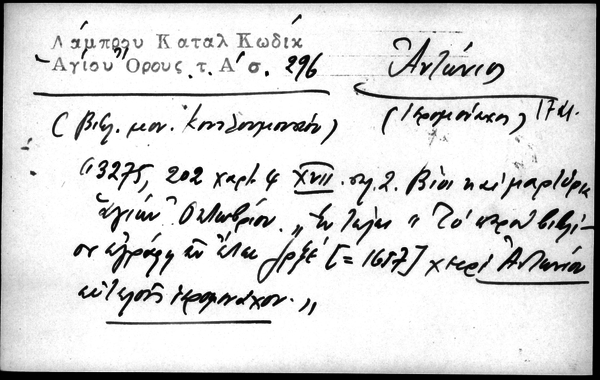 Λάμπρου Καταλ Κωδίκ
Ἁγίου Ὄρους τ. Α΄ σ. 296
Ἀντώνιος
(Βιβλ. μον. Κουτλουμουσίου)
(ἱερομόναχος) 17 αι.
"3275, 202 χαρτ. 4 XVII. σελ. 2. Βίοι καὶ μαρτύρια
ἁγίων Ὀκτωβρίου. „Ἐν τέλει " Τὸ παρὸν βιβλί-
ον ἐγράφη ἐν ἔτει ͵ζρξέ [= 1657] χειρὶ Ἀντωνίου
εὐτελοῦς ἱερομονάχου. „